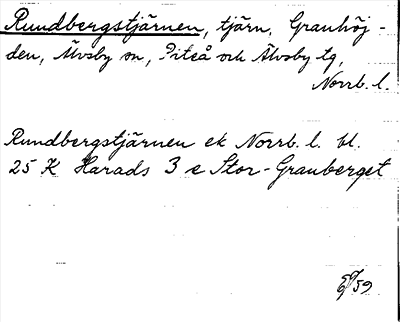 Rundbergstjärnen, tjärn, Granhöj-
den, Älvsby sn, Piteå och Älvsby tg,
Norrb. l.
Rundbergstjärnen ek Norrb. l. bl.
25 K Harads 3 e Stor-Granberget
59